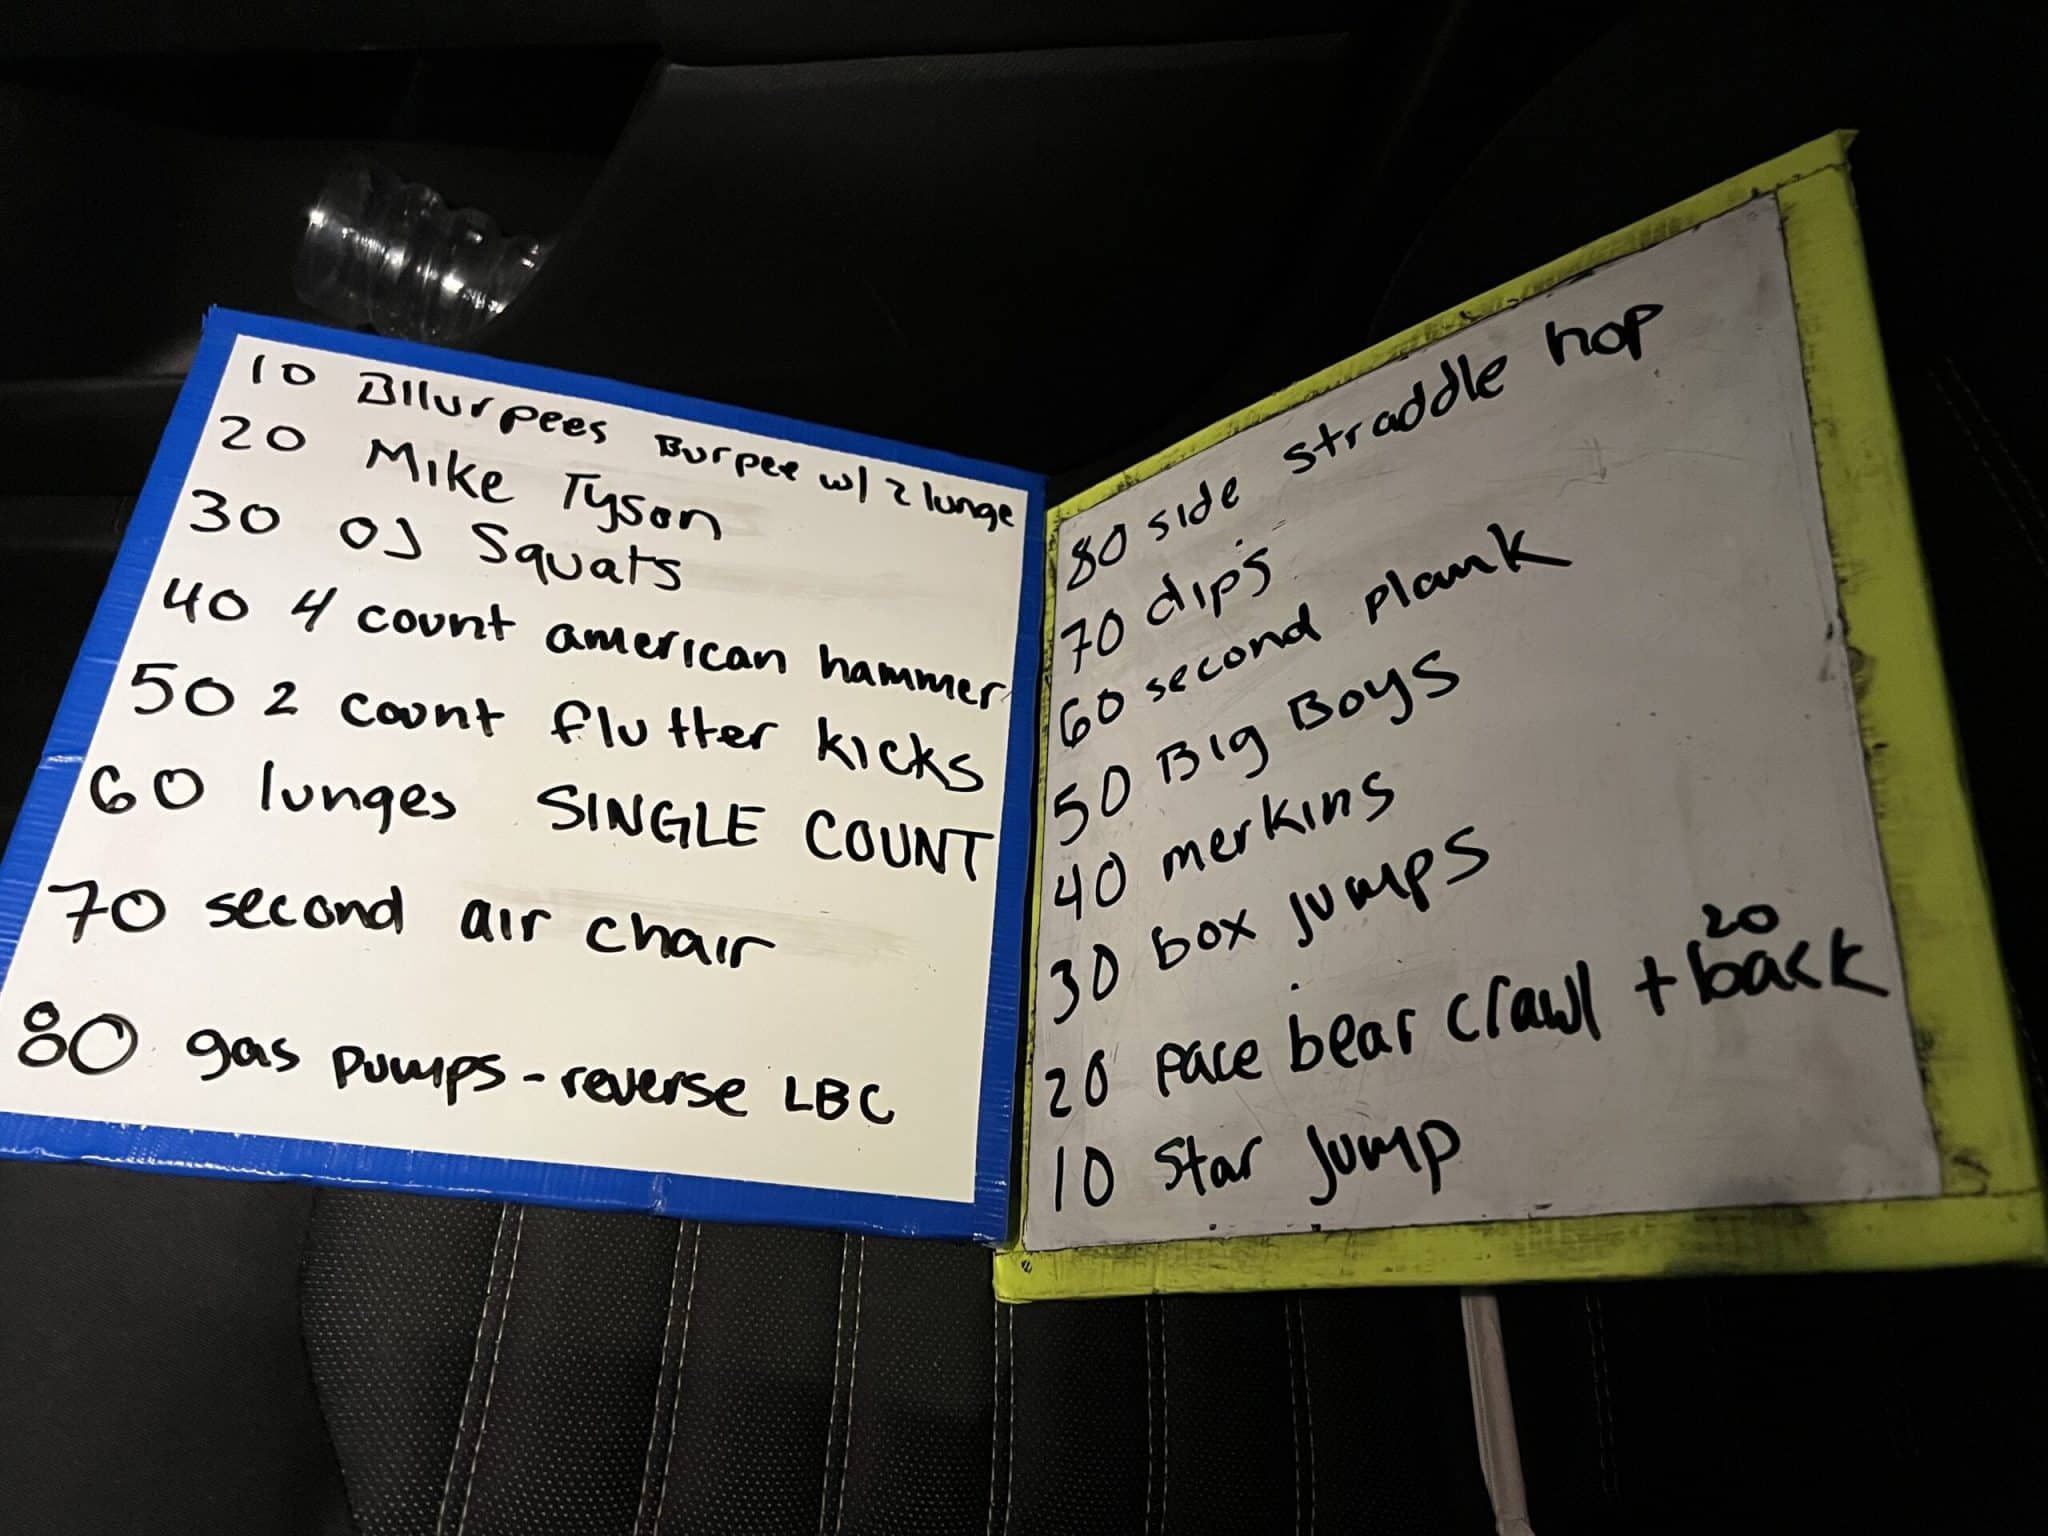 10 Bllurpees Burpee w/ 2 lunge
20 Mike Tyson
30 OJ Squats
40 4 count american hammer
50 2 count flutter kicks
60 lunges SINGLE COUNT
70 second air chair
80 gas pumps - reverse LBC
80 side straddle hop
70 dips
60 second plank
50 Big Boys
40 merkins
30 box jumps
20 pace bear crawl + 20 back
10 Star Jump